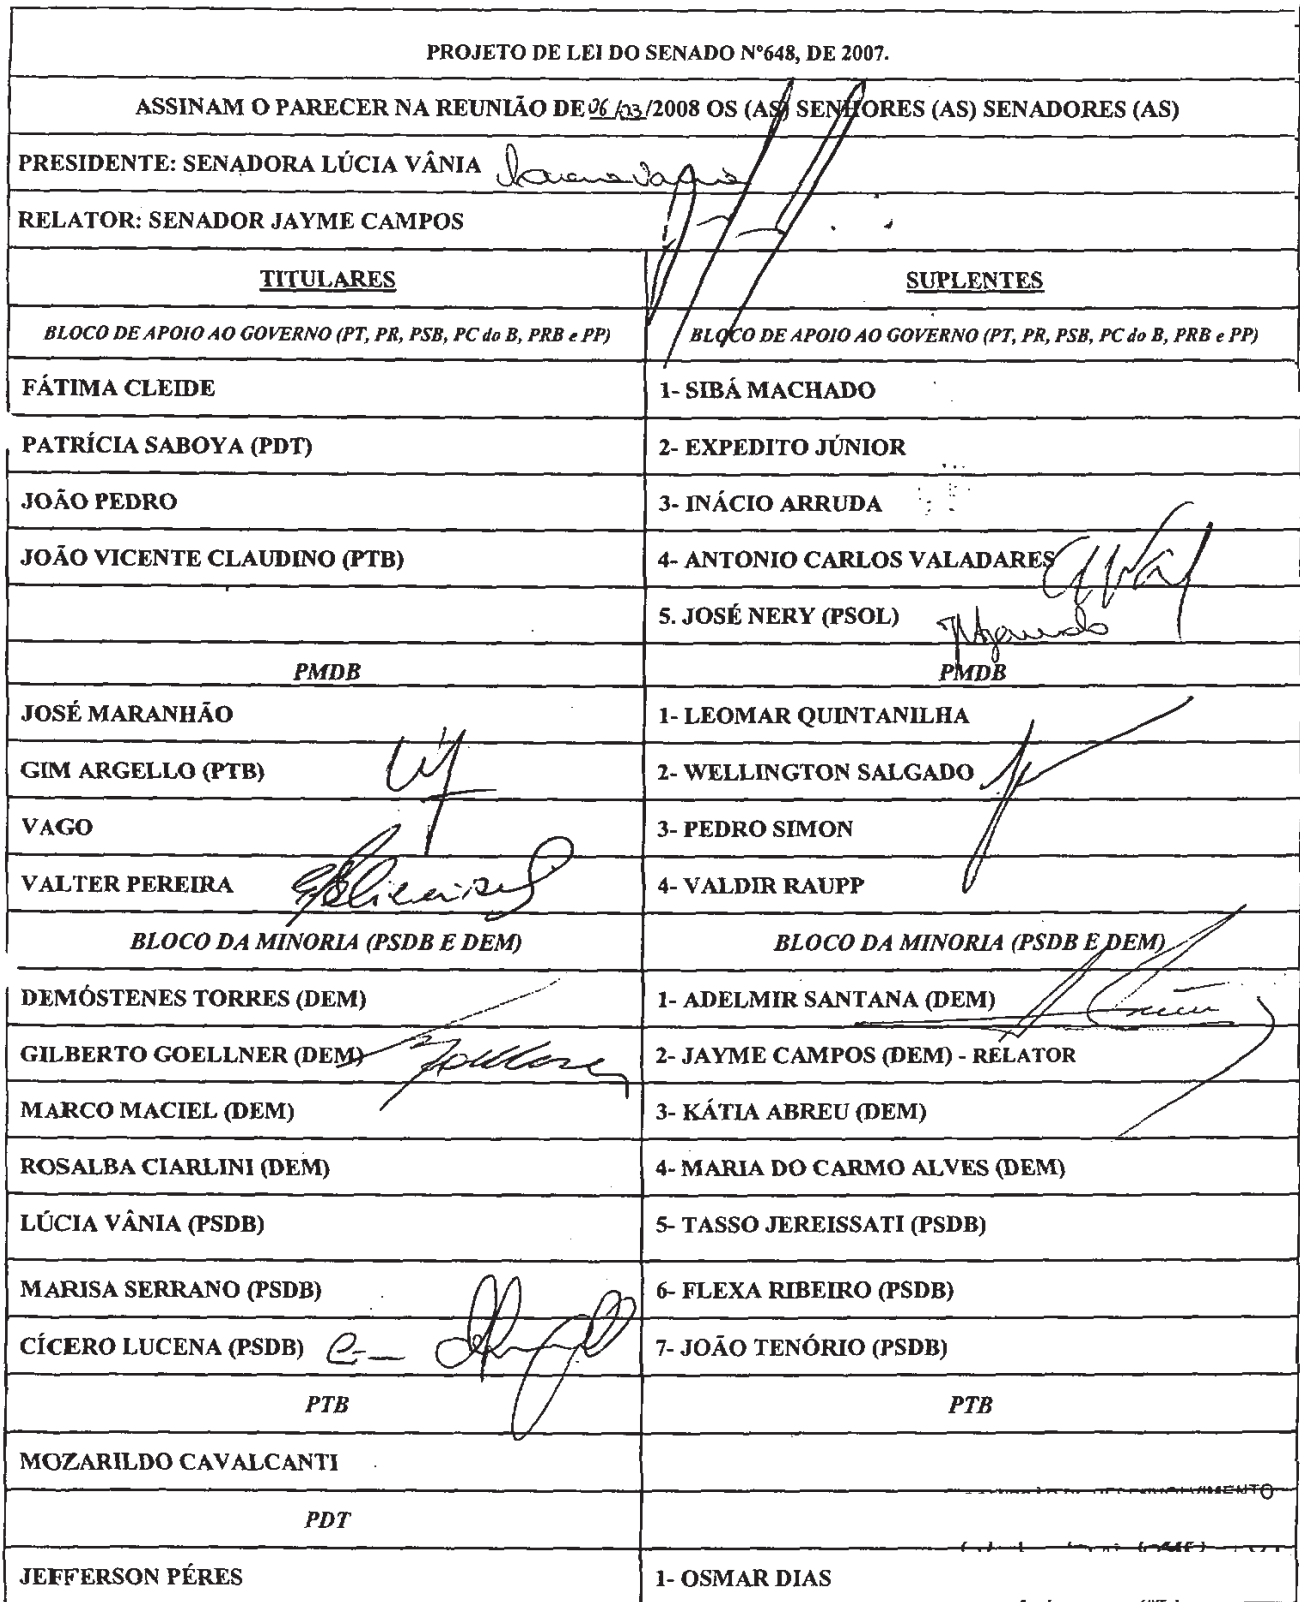 PROJETO DE LEI DO SENADO Nº648, DE 2007.
ASSINAM O PARECER NA REUNIÃO DE 06/03/2008 OS (AS) SENHORES (AS) SENADORES (AS)
PRESIDENTE: SENADORA LÚCIA VÂNIA
RELATOR: SENADOR JAYME CAMPOS
TITULARES SUPLENTES
BLOCO DE APOIO AO GOVERNO (PT, PR, PSB, PC do B, PRB e PP) BLOCO DE APOIO AO GOVERNO (PT, PR, PSB, PC do B, PRB e PP)
FÁTIMA CLEIDE 1- SIBÁ MACHADO
PATRÍCIA SABOYA (PDT) 2- EXPEDITO JÚNIOR
JOÃO PEDRO 3- INÁCIO ARRUDA
JOÃO VICENTE CLAUDINO (PTB) 4- ANTONIO CARLOS VALADARES
5. JOSÉ NERY (PSOL)
PMDB PMDB
JOSÉ MARANHÃO 1- LEOMAR QUINTANILHA
GIM ARGELLO (PTB) 2- WELLINGTON SALGADO
VAGO 3- PEDRO SIMON
VALTER PEREIRA 4- VALDIR RAUPP
BLOCO DA MINORIA (PSDB E DEM) BLOCO DA MINORIA (PSDB E DEM)
DEMÓSTENES TORRES (DEM) 1- ADELMIR SANTANA (DEM)
GILBERTO GOELLNER (DEM) 2- JAYME CAMPOS (DEM) - RELATOR
MARCO MACIEL (DEM) 3- KÁTIA ABREU (DEM)
ROSALBA CIARLINI (DEM) 4- MARIA DO CARMO ALVES (DEM)
LÚCIA VÂNIA (PSDB) 5- TASSO JEREISSATI (PSDB)
MARISA SERRANO (PSDB) 6- FLEXA RIBEIRO (PSDB)
CÍCERO LUCENA (PSDB) 7- JOÃO TENÓRIO (PSDB)
PTB PTB
MOZARILDO CAVALCANTI
PDT
JEFFERSON PÉRES 1- OSMAR DIAS